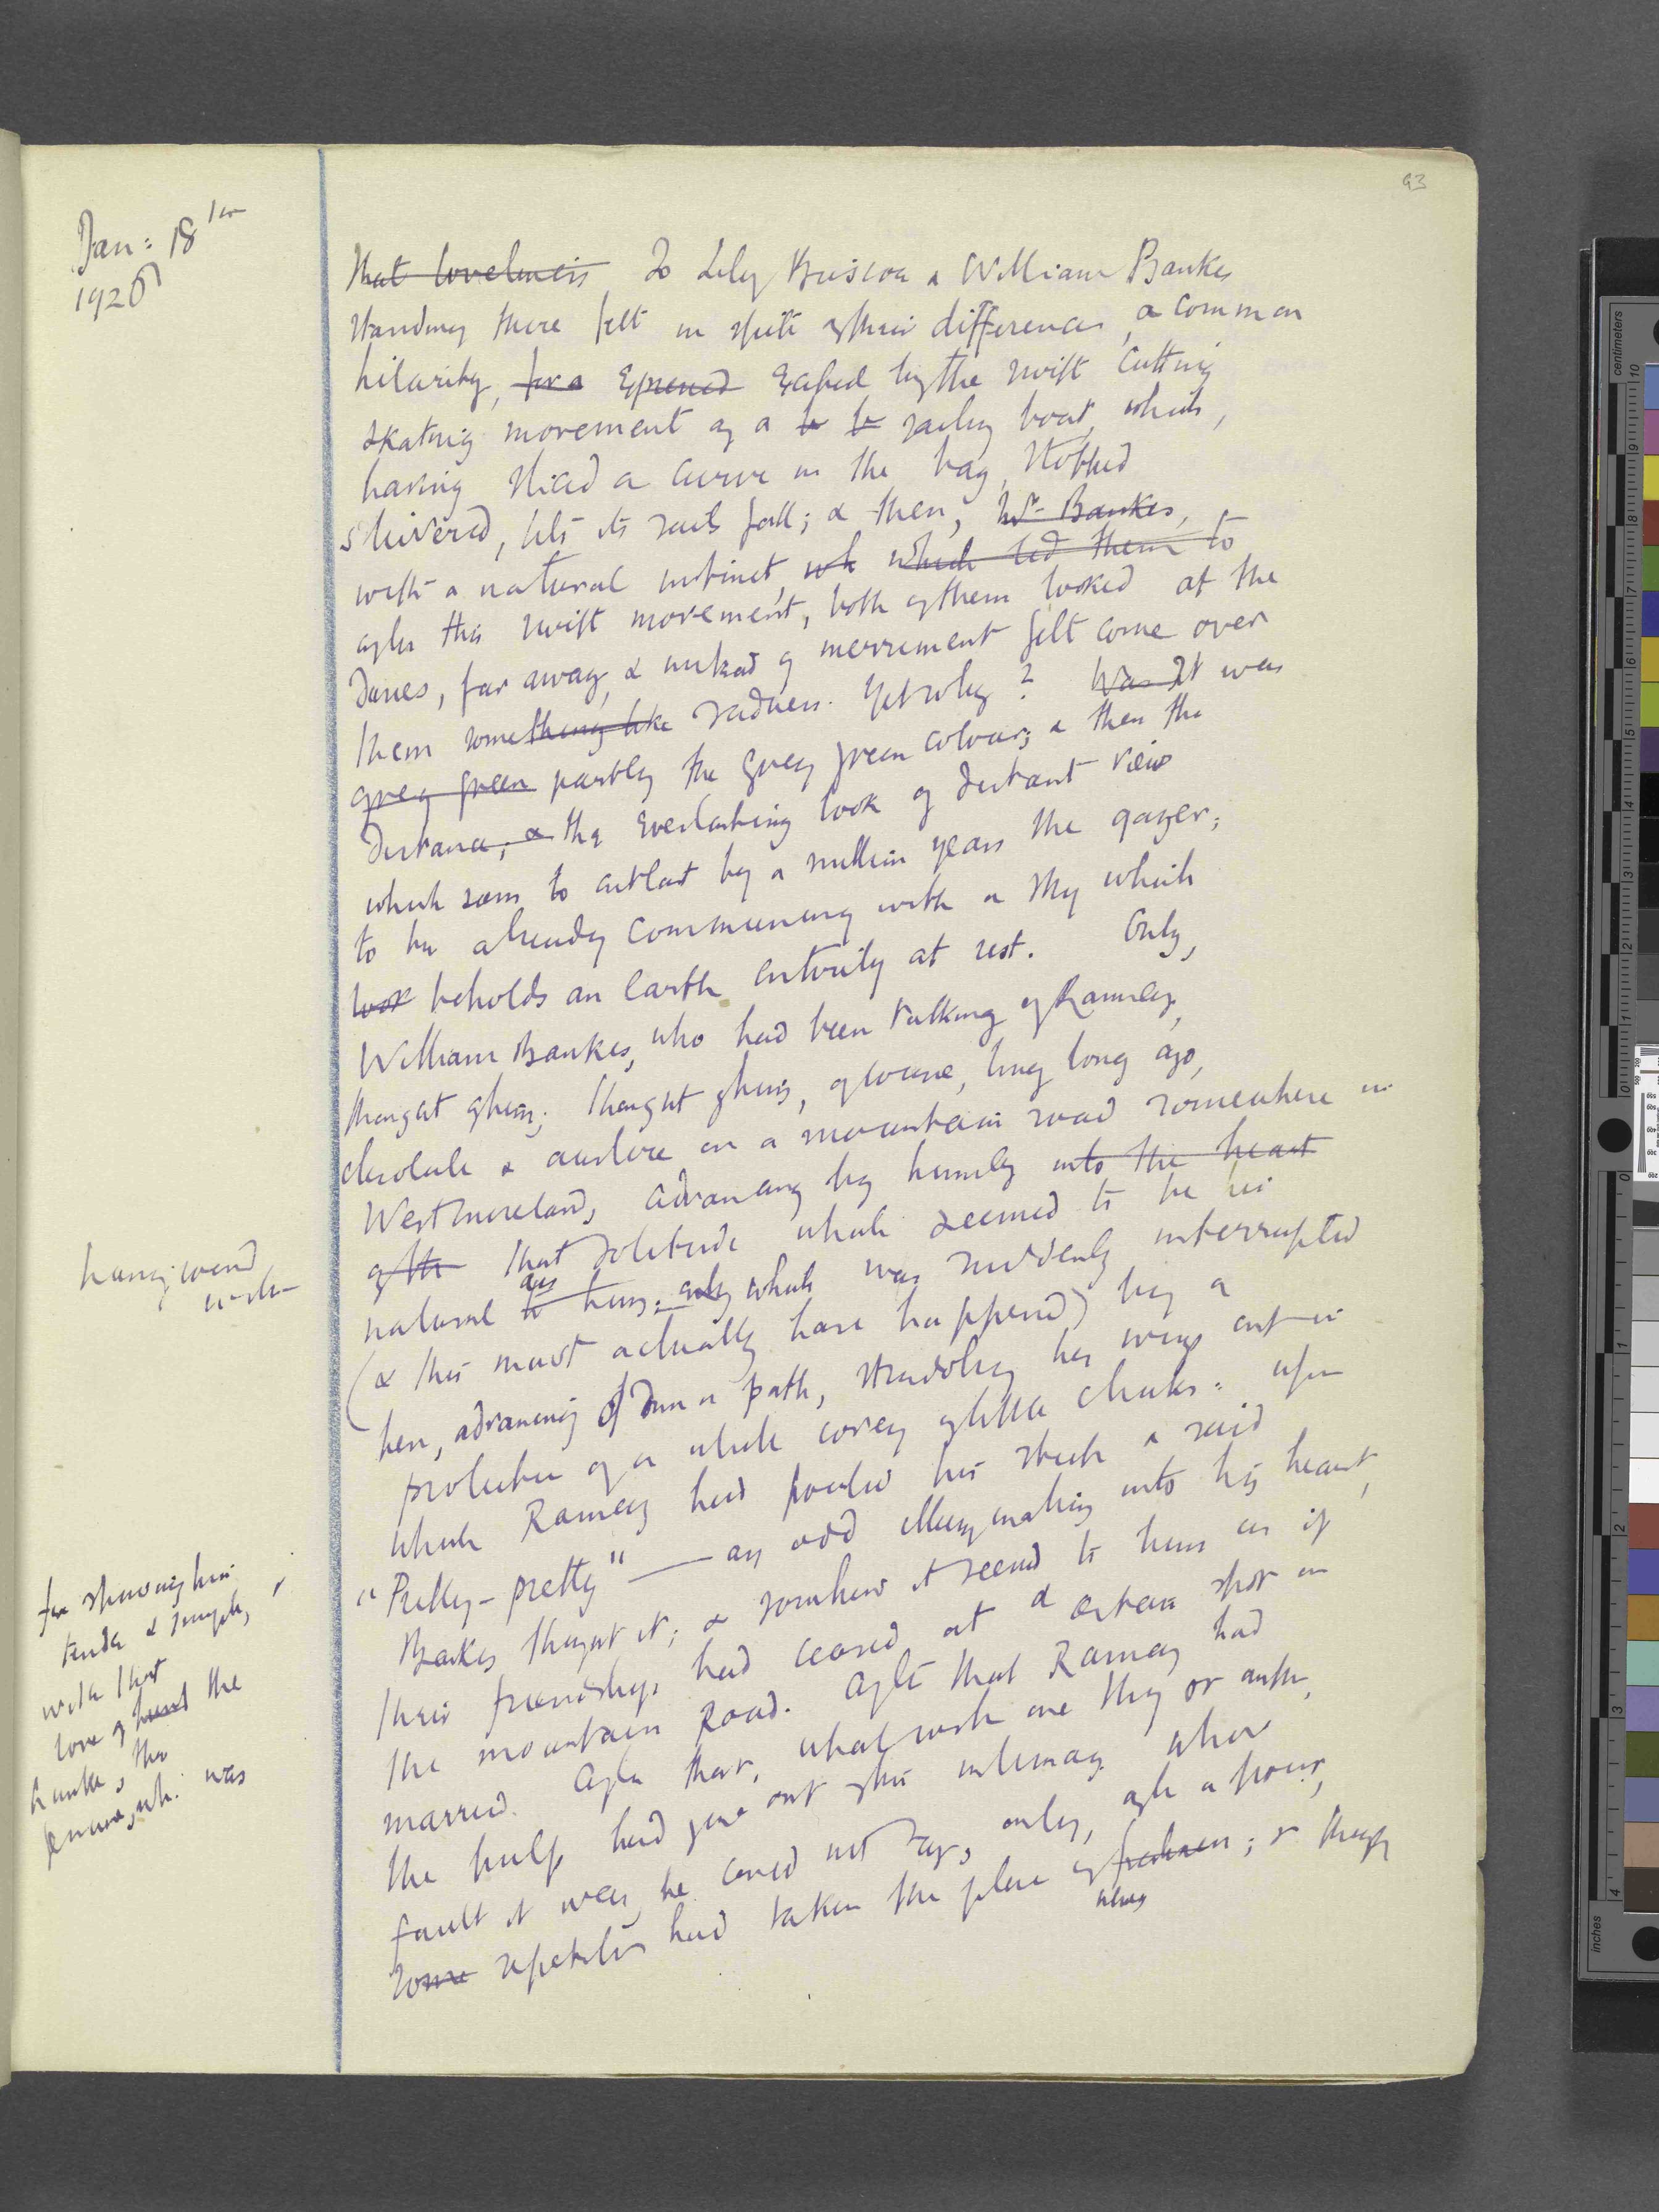 93
Jan: 18th
1926
That loveliness So Lily Briscoe & William Bankes
standing there felt in spite of their differences, a common
hilarity, for a Expressed excited by the swift cutting
skating movement of a b b sailing boat, which,
having sliced a curve in the bay, stopped
shivered, lets its sails fall; & then, Mr. Bankes,
with a natural instinct, wh which led them to
after this swift movement, both of them looked at the
dunes, far away, & instead of merriment felt come over
them something like sadness. Yet why? Was It was
grey green partly the grey green colour; & then the
distance, & the everlasting look of distant view
which seem to outlast by a million years the gazer;
to be already communing with a sky which
look beholds an earth entirely at rest. Only,
William Bankes, who had been talking of Ramsay,
thought of him; thought of him, of course, long long ago,
desolate & austere on a mountain road somewhere in
Westmoreland, advancing by himself into the heart
of the that solitude which seemed to be his
natural air to him; only which was suddenly interrupted
(& this must actually have happened) by a
hen, advancing down a path, straddling her wings out in
protection of a whole covey of little chicks: upon
which Ramsay had pointed his stick & said
"Pretty-pretty" — an odd illumination into his heart,
Bankes thought it; & somehow it seemed to him as if
their friendship had ceased at a certain spot on
the mountain road. After that Ramsay had
married. After that, what with one thing or another,
the pulp had gone out of their intimacy. Whose
fault it was, he could not say, only, after a time,
some repetition had taken the place of freshness; & though
newness
having
for showing him
tender & simple, &
with that
love of hund the
humble, the